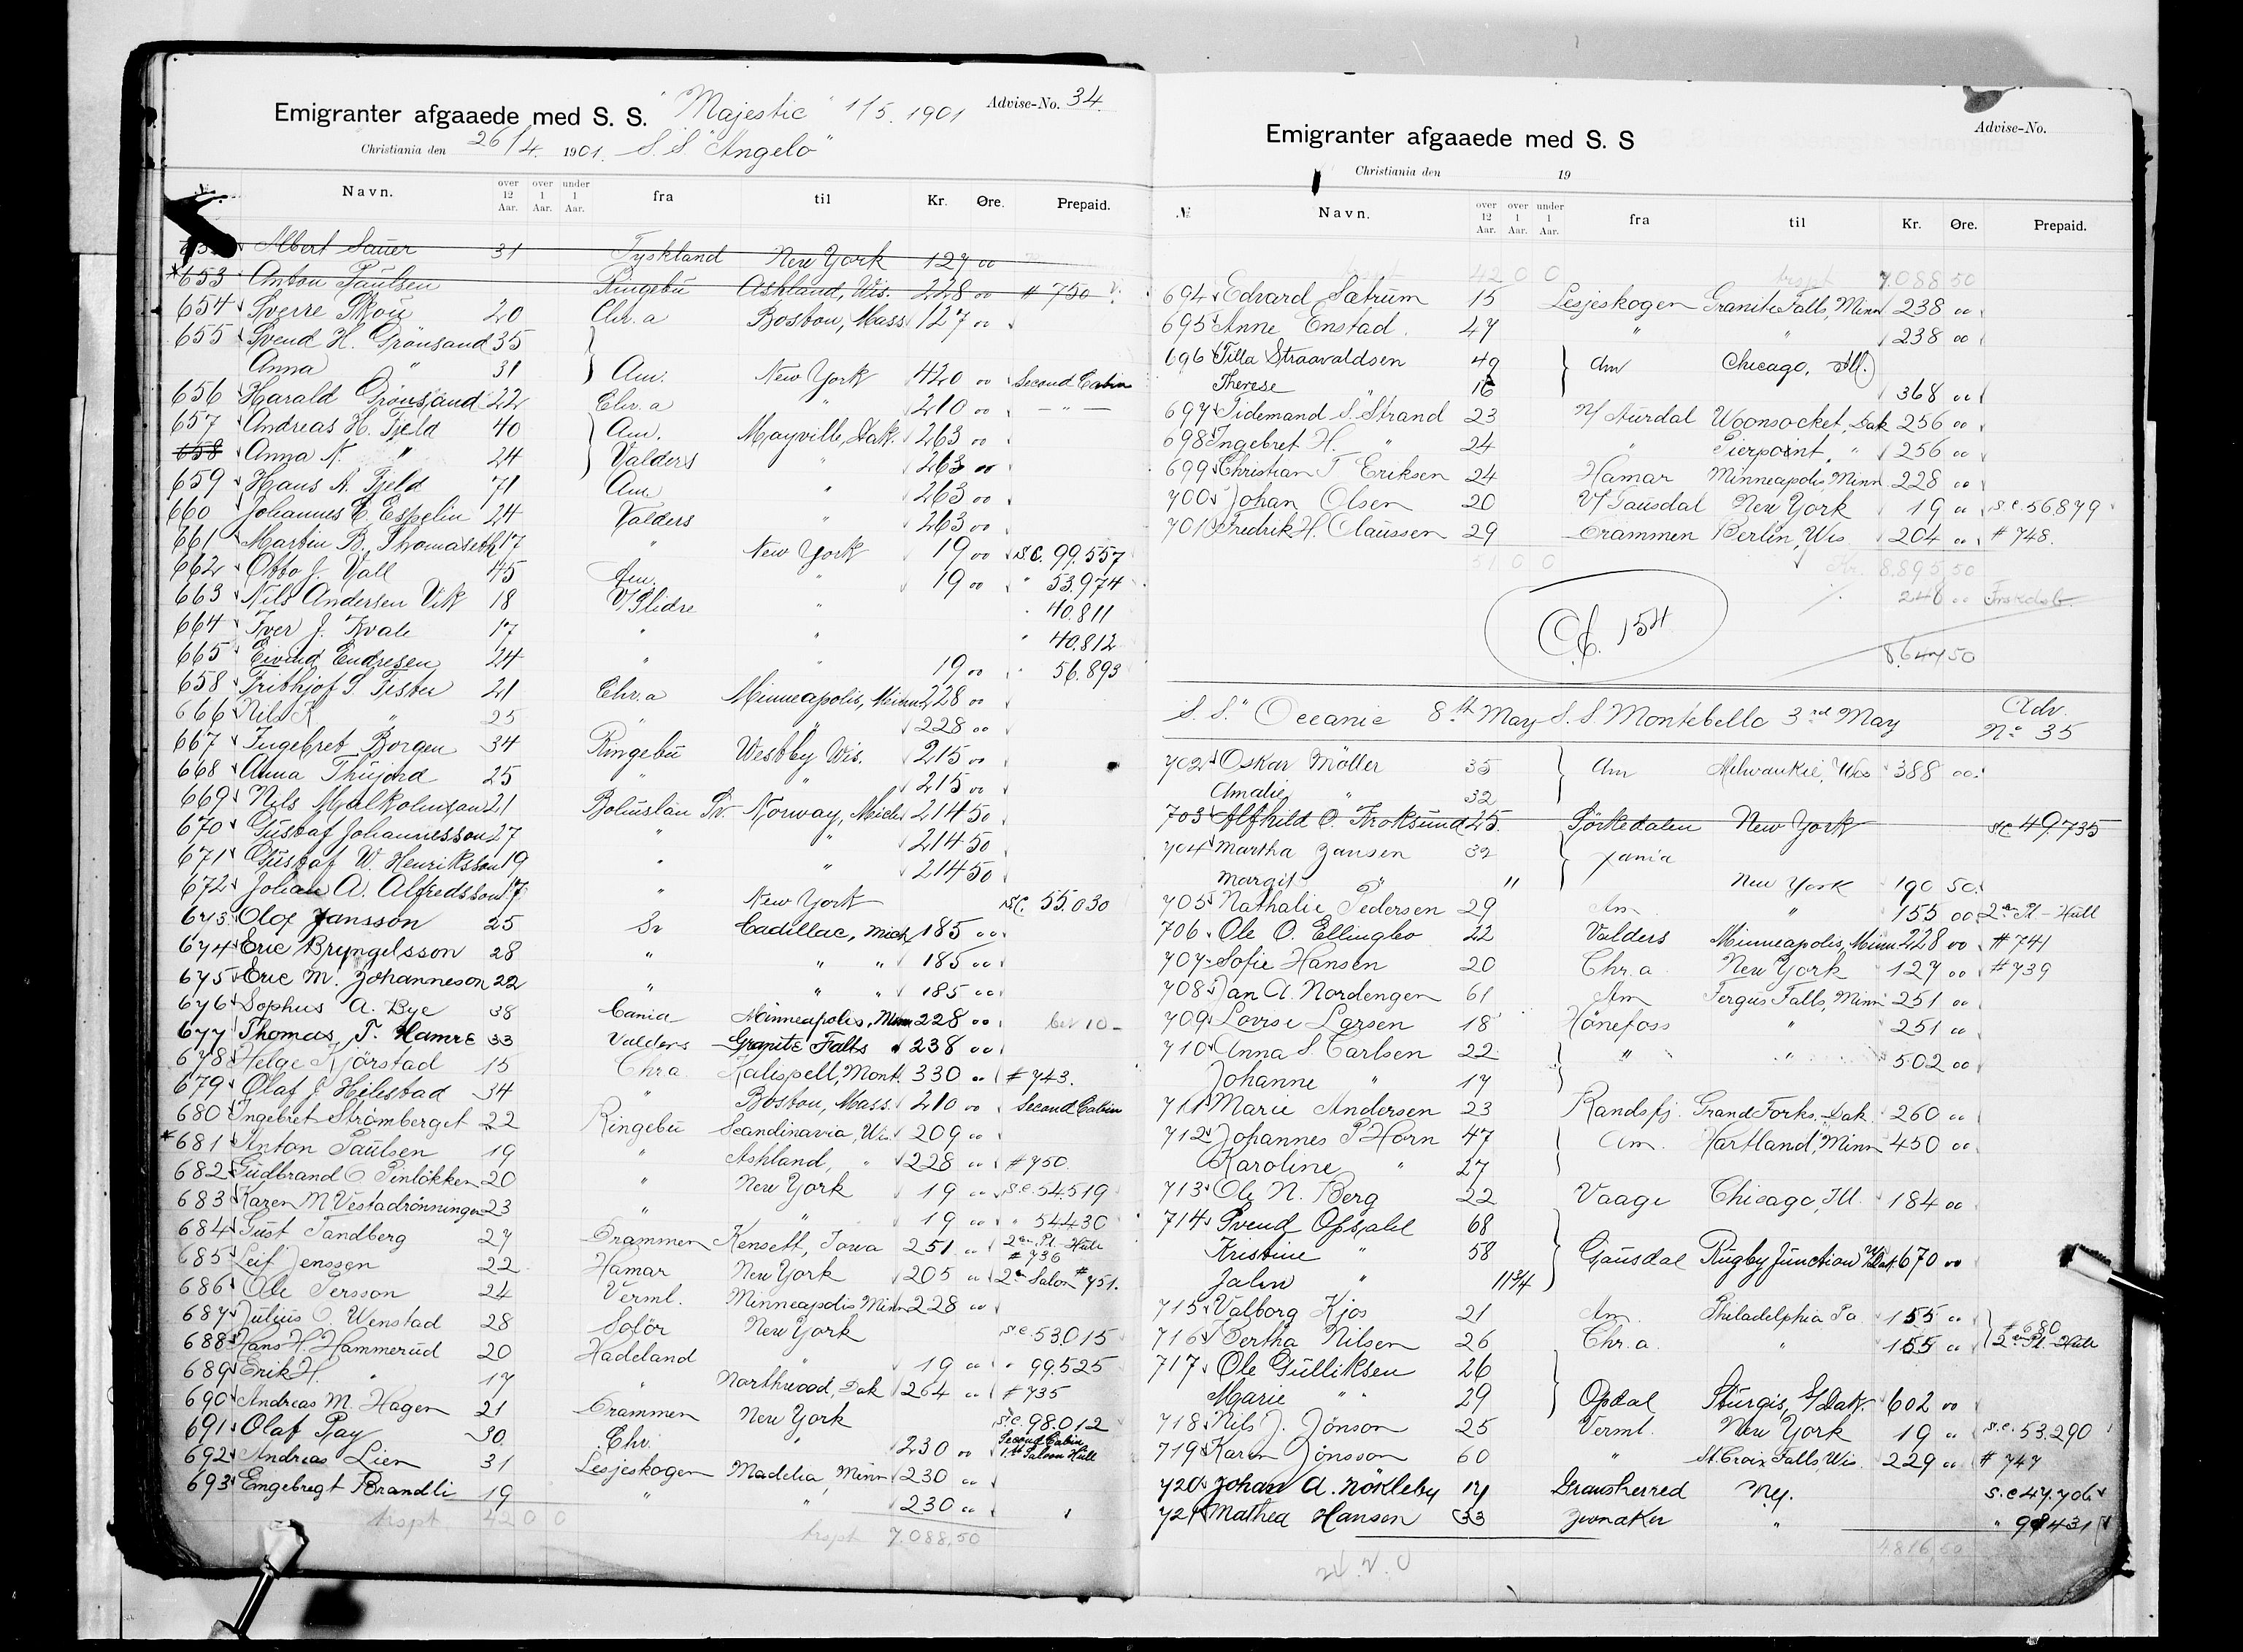 Emigranter afgaaede med S. S. "Majestic" 1/5. 1901 Advise-No. 34.
Christiania den 26/4. 1901. S.S "Angelo"
Navn. over 12 Aar. over 1 Aar. under 1 Aar. fra til Kr. Øre. Prepaid.
Albert Sauer 31 Tyskland New York 127 00
*653 Anton Paulsen Ringebu Ashland, Wis. 228 00 # 750
654 Sverre Skou 20 Chr.a Boston, Mass 127 00
655 Svend H. Grönsand 35
Anna " 31 Am. New York 420 00 Second Cabin
656 Harald Grönsand 22 Chr.a " 210 00 — " —
657 Andreas H. Fjeld 40 Am. Mayville, Dak. 263 00
658 Anna N. " 24 Valders " 263 00
659 Hans A. Fjeld 71 Am " 263 00
660 Johannes E. Espelin 24 Valders " 263 00
661 Martin B. Thomaseth 17 " New York 19 00 s.c. 99.557
662 Otto J. Vall 45 Am. " 19 00 " 53.974
663 Nils Andersen Vik 18 V/Slidre " " 40.811
664 Iver J. Kvale 17 " " " 40.812
665 Eivind Endresen 24 " " 19 00 " 56.893
658 Frithjof S. Tister 21 Chr.a Minneapolis, Minn 228 00
666 Nils K " 25 " " 228 00
667 Ingebret Borgen 34 Ringebu Westby Wis. 215 00
668 Anna Thujord 25 " " 215 00
669 Nils Malkolmsan 21 Bohuslän Sv. Norway, Mich 214 50
670 Gustaf Johannesson 27 " " 214 50
671 Gustaf W. Henriksson 19 " " 214 50
672 Johan A. Alfredsson 17 " New York s.c. 55.030
673 Olof Jansson 25 Sv Cadillac, Mich, 185 00
674 Eric Bryngelsson 28 " " " 185 00
675 Eric M. Johanneson 22 " " " 185 00
676 Sophus A. Bye 38 Xania Minneapolis, Minn 228 00
677 Thomas T. Hamre 33 Valders Granite Falls " 238 00
678 Helge Kjörstad 15 Chr.a Kalispell, Mont. 330 00 # 743.
679 Olaf J. Hilestad 34 " Boston, Mass. 210 00 Second Cabin
680 Ingebret Strömberget 22 Ringebu Scandinavia, Wis. 209 00
*681 Anton Paulsen 19 " Ashland, " 228 00 # 750.
682 Gudbrand O Pinlökken 20 " New York 19 00 s.c. 54519
683 Karen M Vestadrönningen 23 " " 19 00 " 54430
684 Gust Sandberg 27 Drammen Kensett, Iowa 251 00 2en Pl. - Hull # 736
685 Leif Jenssen 22 Hamar New York 205 00 2n Salon # 751.
686 Ole Persson 24 Verml. Minneapolis Minn 228 00
687 Julius O. Wenstad 28 Solör New York s.c. 53.015
688 Hans H. Hammerud 20 Hadeland " 19 00 " 99.525
689 Erik H. " 17 " Northwood, Dak 264 00 # 735
690 Andreas M. Hagen 21 Drammen New York s.c. 98.012
691 Olaf Ray 30 Chr. " 230 00 Second Cabin 1st Saloon Hull
692 Andreas Lien 31 Lesjeskogen Madelia, Minn 230 00
693 Engebregt Brandli 19 " " 230 00
trspt 42 0 0 trspt 7.088,50
Emigranter afgaaede med S. S Advise-No.
Christiania den 19
№ Navn. over 12 Aar. over 1 Aar. under 1 Aar. fra til Kr. Øre. Prepaid.
trspt 42 0 0 trspt 7.088 50
694 Edvard Sætrum 15 Lesjeskogen Granite Falls, Minn 238 00
695 Anne Enstad. 47 " " 238 00
696 Tilla Straavaldsen 49 Am Chicago, Ill.
Therese " 16 368 00
697 Tidemand S. Strand 23 N/Aurdal Woonsocket, Dak 256 00
698 Ingebret H. " 24 " Pierpoint, " 256 00
699 Christian T Eriksen 24 Hamar Minneapolis, Minn 228 00
700 Johan Olsen 20 V/Gausdal New York 19 00 s.c. 56879
701 Fredrik H. Claussen 29 Drammen Berlin, Wis 204 00 # 748.
51 0 0 Kr. 8.895 50
248 00
154
8.647 50
S.S. "Oceanic 8th May S.S. Montebello 3rd May Adv. No 35
702 Oskar Möller 35 Am Milwaukie, Wis 388 00
Amalie " 32
703 Alfhild O. Froksund 25. Sörkedalen New York s.c 49735
704 Martha Jansen 32 Xania
Margit " 11 New York 190 50
705 Nathalie Pedersen 29 Am " 155 00 2en Pl - Hull
706 Ole O. Ellingbo 22 Valders Minneapolis, Minn 228 00 # 741
707 Sofie Hansen 20 Chr.a New York 127 00 # 739
708 Jan A. Nordengen 61 Am Fergus Falls, Minn 251 00
709 Lovise Larsen 18 Hönefoss " 251 00
710 Anna S. Carlsen 22 " " 502 00
Johanne " 17
711 Marie Andersen 23 Randsfj. Grand Forks, Dak. 260 00
712 Johannes P Horn 47 Am. Hartland, Minn 450 00
Karoline " 27
713 Ole N. Berg 22 Vaage Chicago, Ill. 184 00
714 Svend Opsahl 68
Kristine " 58 Gausdal Rugby Junction 670 00
Jalm " 11 3/4
715 Valborg Kjos 21 Am. Philadelphia Pa 155 00 # 680
716 Bertha Nilsen 26 Chr.a. " 155 00 2en Pl. Hull
717 Ole Gulliksen 26
Marie " " 29 Opdal Sturgis, S/Dak. 602 00
718 Nils J. Jönson 25 Verml. New York 19 " s.c. 53.290
719 Karen Jönsson 60 " St. Croix Falls, Wis. 229 00 # 747
720 Johan A. Nökleby 17 Gransherred N.y. s.c 47.706
721 Mathea Hansen 33 " " 98431
4.816,50